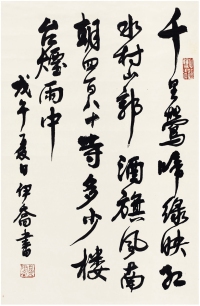 千里鶯啼綠映紅
水村山郭酒旗風南
朝四百八十寺多少樓
台煙雨中
戊午夏日伊喬書